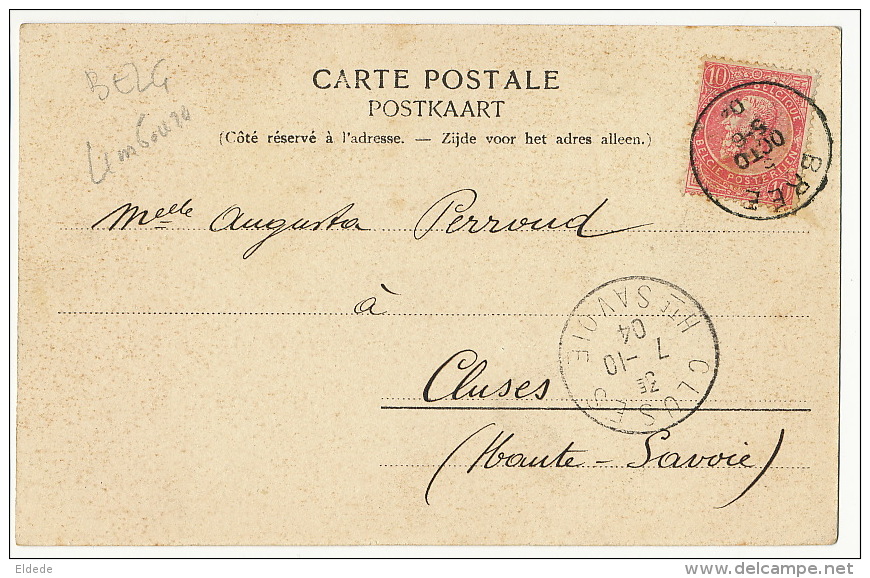 BELG
Limbourg
CARTE POSTALE
POSTKAART
(Côté réservé à l'adresse. — Zijde voor het adres alleen.)
10
BELGIQUE
BELGIE POSTERIJEN
BREE
OCTO
Melle Augusta Perroud
à
Cluses
(Haute-Savoie)
CLUSES
Hte SAVOIE
3E
7 -10
04
Eldede
delcampe.net